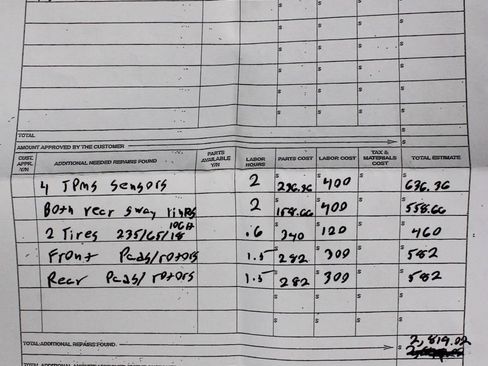 TOTAL
AMOUNT APPROVED BY THE CUSTOMER
CUST. APPR. Y/N ADDITIONAL NEEDED REPAIRS FOUND PARTS AVAILABLE Y/N LABOR HOURS PARTS COST LABOR COST TAX & MATERIALS COST TOTAL ESTIMATE
4 TPMS Sensors 2 $236.36 $400 $ $636.36
Both rear sway links 2 $158.66 $400 $ $558.66
2 Tires 235/65/18 106H .6 $340 $120 $ $460
Front Pads/rotors 1.5 $282 $300 $ $582
Rear Pads/rotors 1.5 $282 $300 $ $582
TOTAL ADDITIONAL REPAIRS FOUND $2,819.02